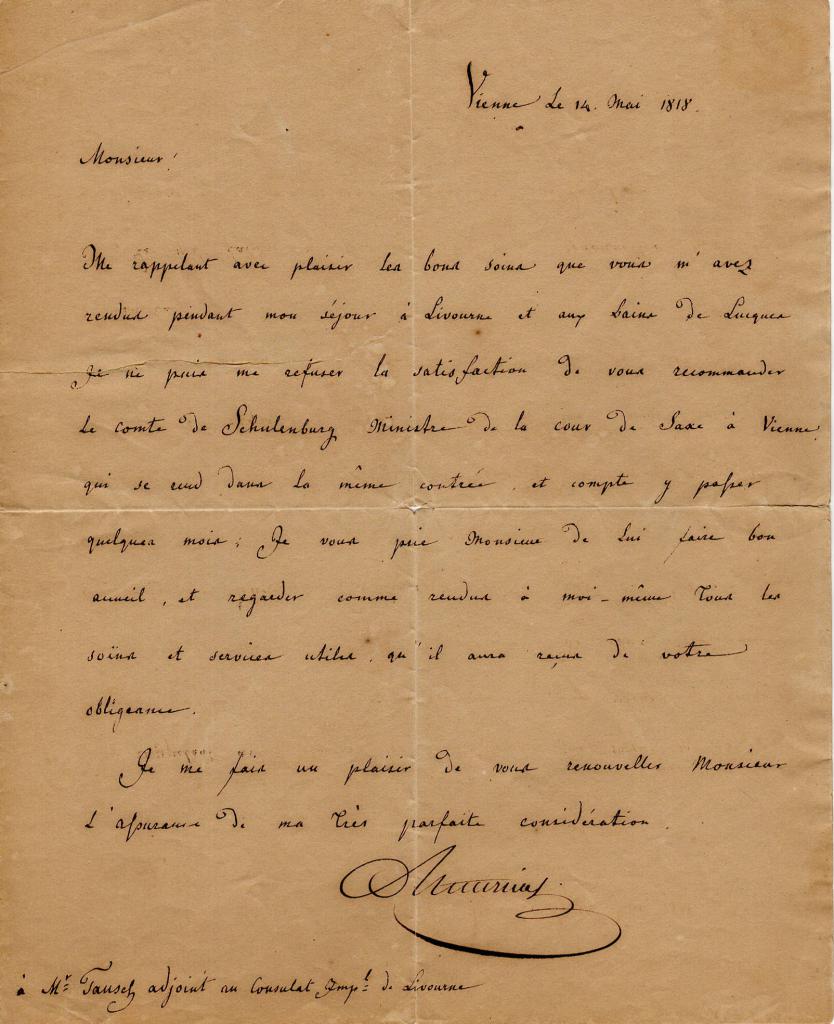 Vienne Le 14. Mai 1818.
Monsieur!
Me rappelant avec plaisir les bons soins que vous m'avez
rendus pendant mon séjour à Livourne et aux bains de Lucques
Je ne puis me refuser la satisfaction de vous recommander
Le comte de Schulenburg Ministre de la cour de Saxe à Vienne,
qui se rend dans la même contrée, et compte y passer
quelques mois; Je vous prie Monsieur de lui faire bon
accueil, et regarder comme rendus à moi-même tous les
soins et services utiles, qu'il aura reçus de votre
obligeance.
Je me fais un plaisir de vous renouveller Monsieur
L'assurance de ma très parfaite considération.
à Mr. Tausch adjoint au Consulat Impl. de Livourne